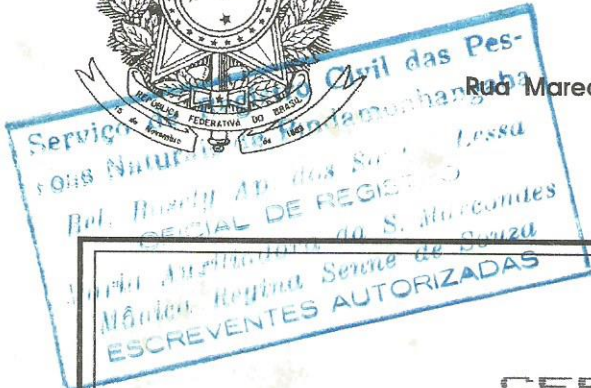 REPÚBLICA FEDERATIVA DO BRASIL
15 de Novembro de 1889
Rua Marec
Serviço de Registro Civil das Pes-
soas Naturais de Pindamonhangaba
Bel. Rosely Ap. dos Lessa
OFICIAL DE REGISTRO
Maria Auxiliadora da S. Marcondes
Mônica Regina Senne de Souza
ESCREVENTES AUTORIZADAS